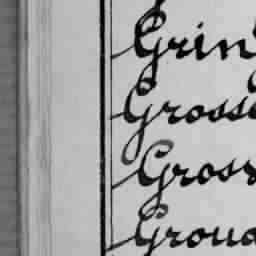 Grin
Gross
Gross
Grou